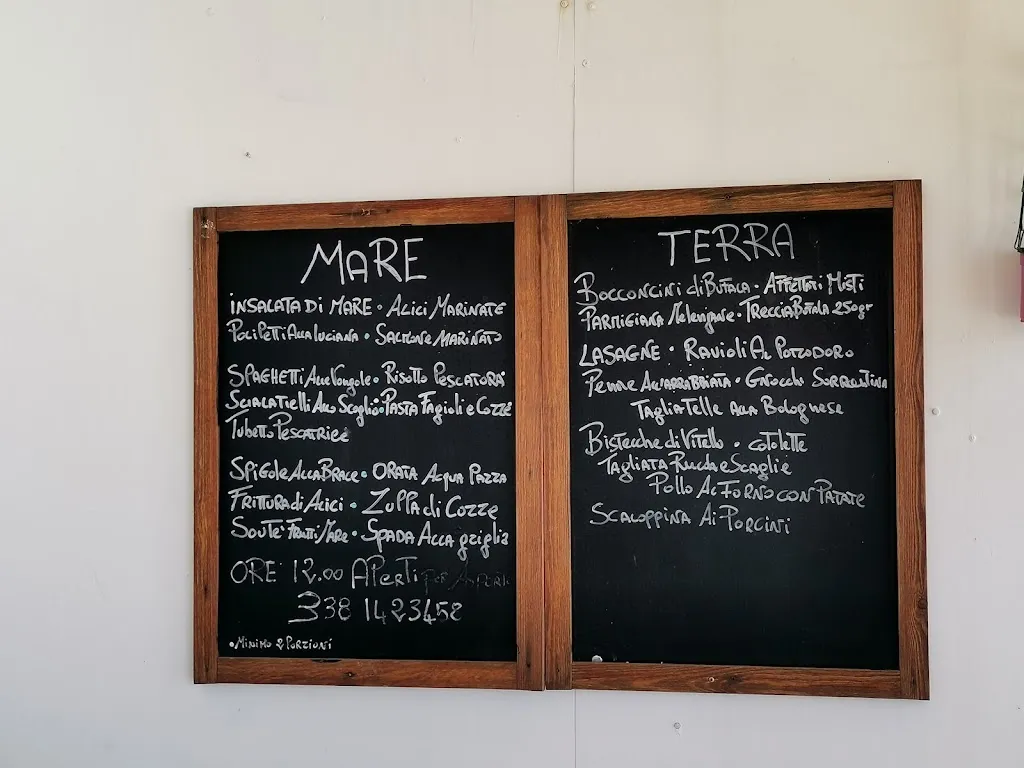 MARE
INSALATA DI MARE • ALICI MARINATE
POLIPETTI ALLA LUCIANA • SALMONE MARINATO
SPAGHETTI ALLE Vongole • RISOTTO PESCATORA
SCIALATIELLI ALLO Scoglio • PASTA FAGIOLI e COZZE
TUBETTO PESCATRICE
SPIGOLE ALLA BRACE • ORATA ACQUA PAZZA
FRITTURA di ALICI • ZUPPA di COZZE
SOUTÈ FRUTTI MARE • SPADA ALLA griglia
ORE 12.00 APERTI PER
338 1423458
• MINIMO 2 PORZIONI
TERRA
BOCCONCINI di BUFALA • AFFETTATI MISTI
PARMIGIANA Melenzane • TRECCIA BUFALA 250gr
LASAGNE • RAVIOLI AL POMODORO
PENNE ALL'ARRABBIATA • GNOCCHI SORRENTINA
TAGLIATELLE ALLA BOLOGNESE
BISTECCHE di VITELLO • COTOLETTE
TAGLIATA Rucola e SCAGLIE
POLLO AL FORNO CON PATATE
SCALOPPINA AI PORCINI